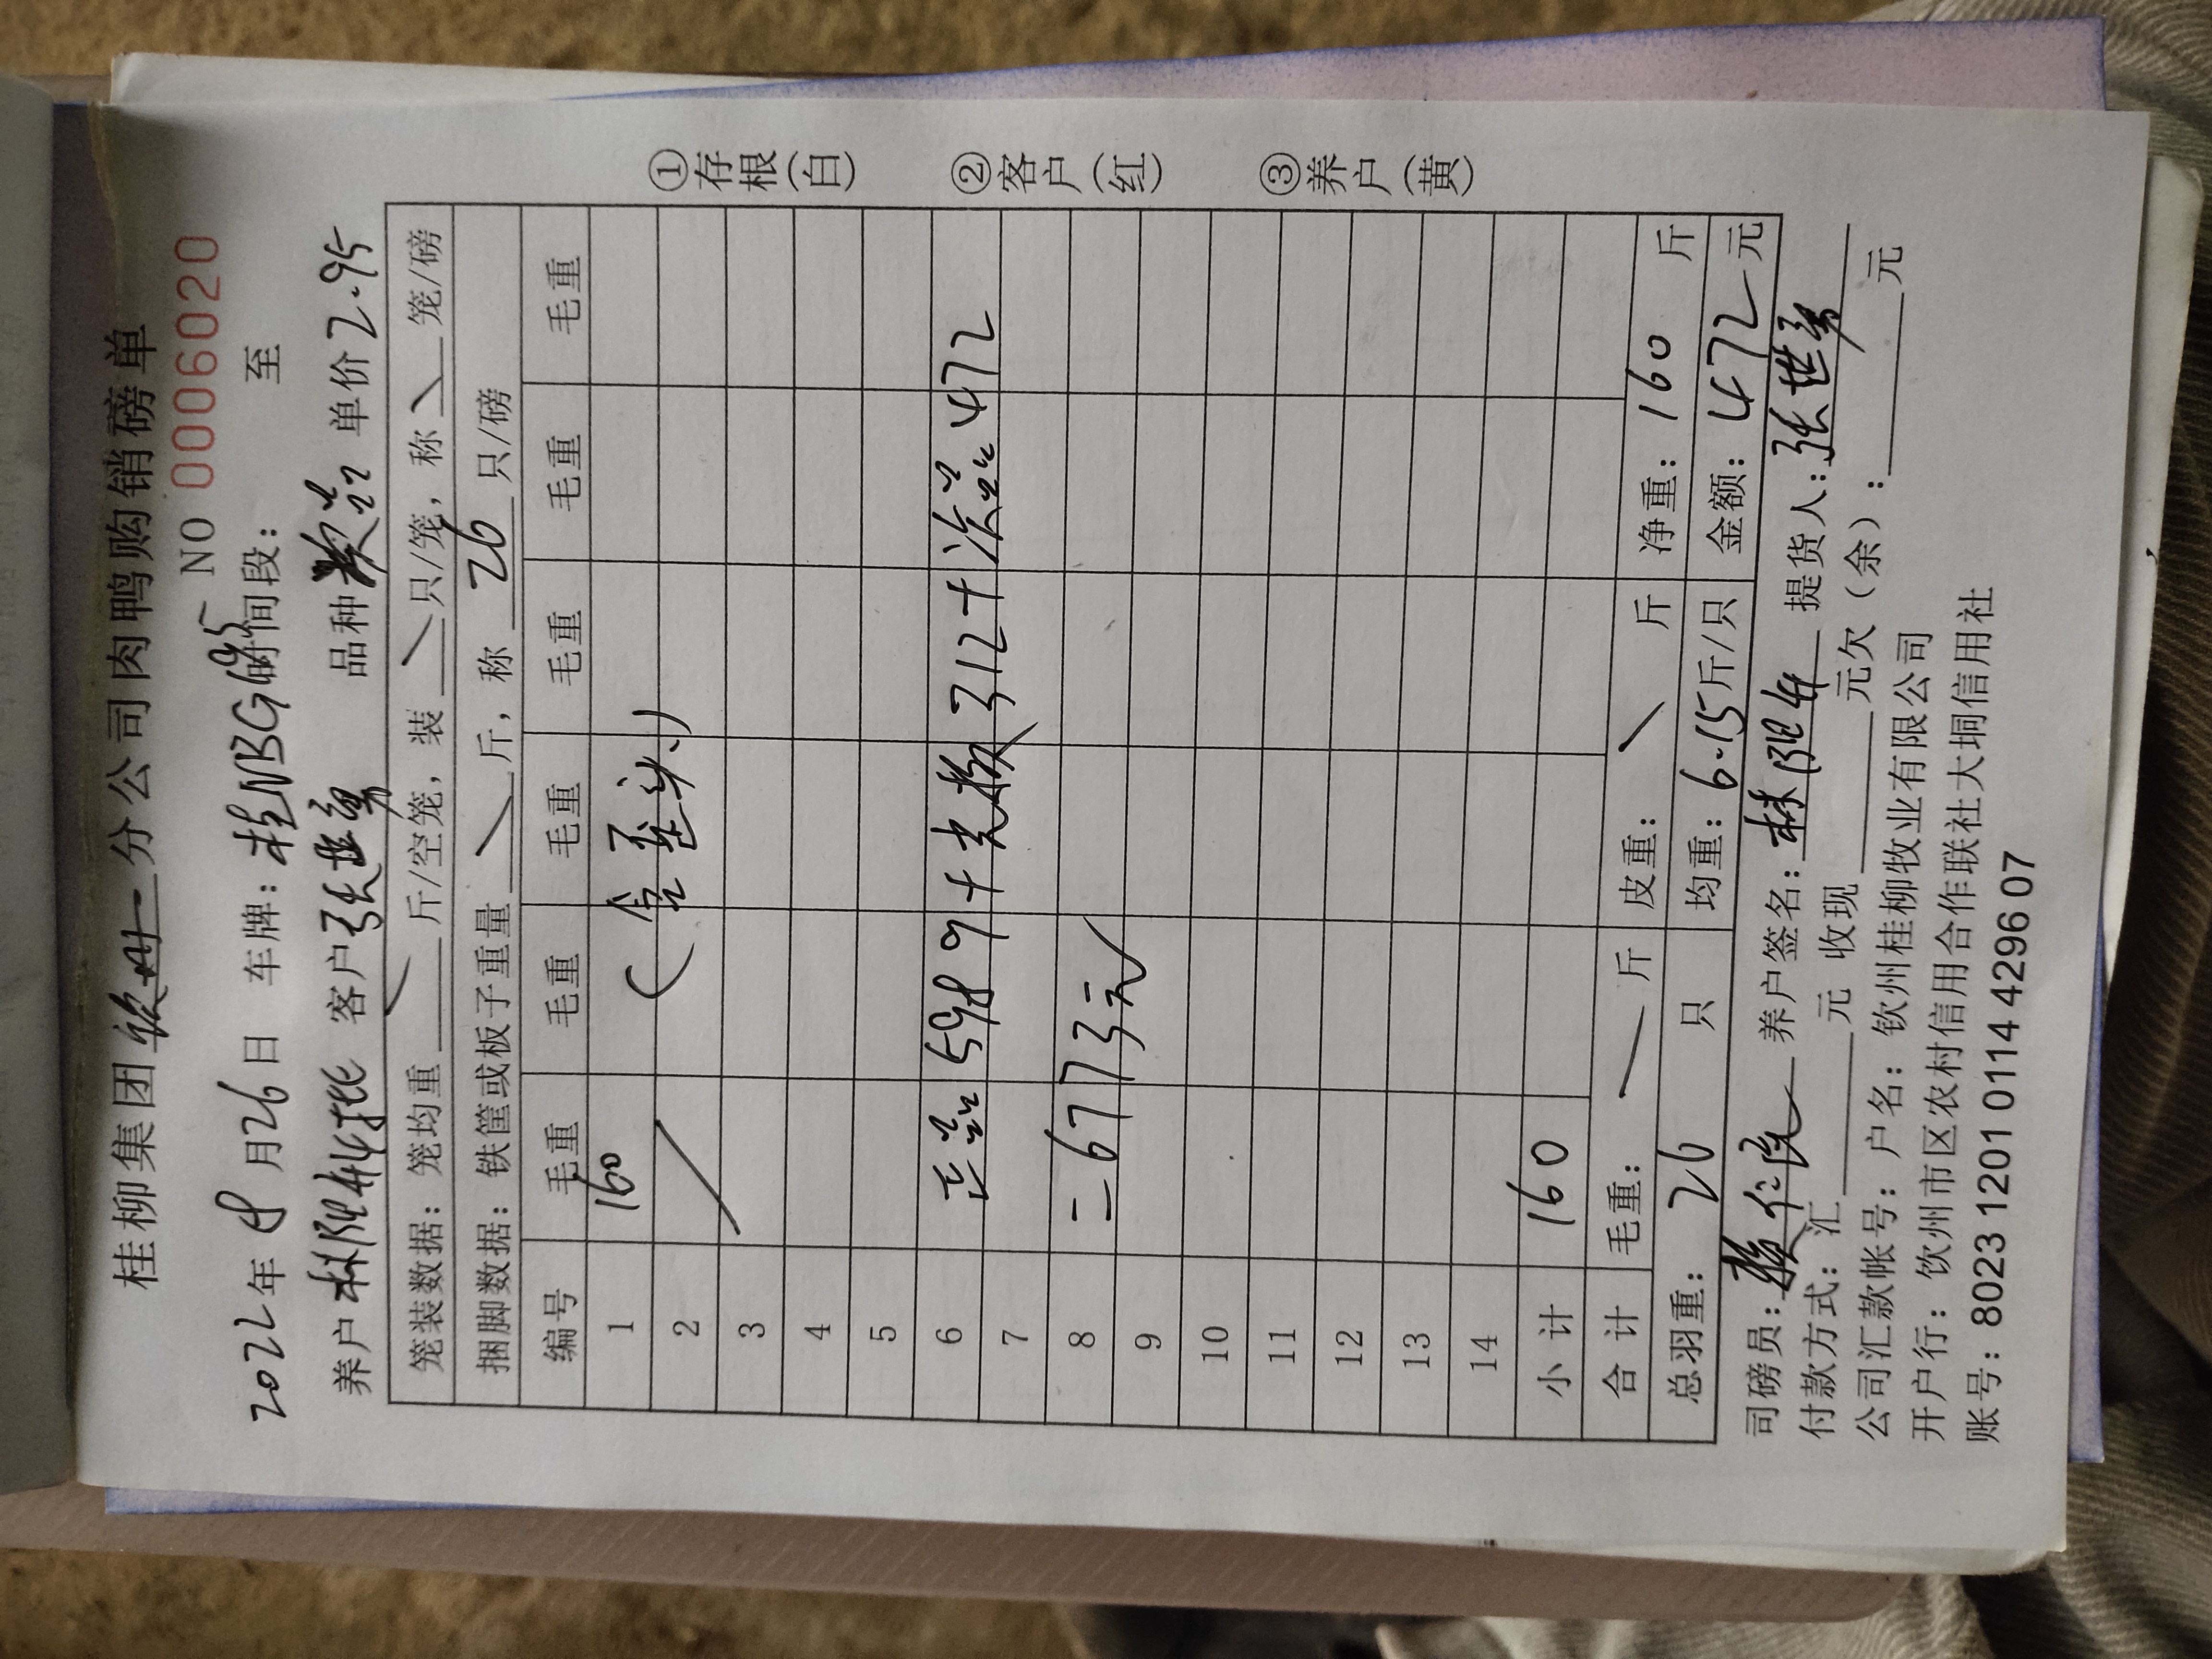 桂柳集团钦州分公司肉鸭购销磅单
NO 0006020
2022年9月26日 车牌：桂NBG995 时间段： 至
养户 客户张世勇 品种 单价2.95
笼装数据：笼均重 斤/空笼，装 只/笼，称 笼/磅
捆脚数据：铁筐或板子重量 斤，称 26 只/磅
编号 毛重 毛重 毛重 毛重 毛重 毛重
1 160
2
3
4
5
6 正品5989+光 312+次品472
7
8 =6773元
9
10
11
12
13
14
小计 160
合计 毛重： 斤 皮重： 斤 净重：160 斤
总羽重：26 只 均重：6.15斤/只 金额：472元
司磅员： 养户签名： 提货人：张世勇
付款方式：汇 元 收现 元欠（余）： 元
公司汇款帐号：户名：钦州桂柳牧业有限公司
开户行：钦州市区农村信用合作联社大垌信用社
账号：8023 1201 0114 4296 07
①存根（白）
②客户（红）
③养户（黄）